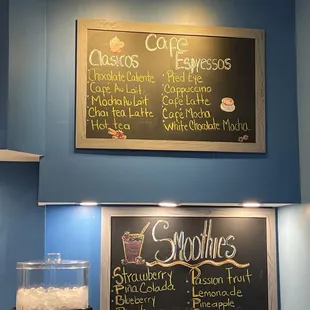 Cafe
Clasicos
Chocolate Caliente
Café Au Lait
Mocha Au Lait
Chai tea Latte
Hot tea
Espressos
Red Eye
Cappuccino
Cafe Latte
Cafe Mocha
White Chocolate Mocha
Smoothies
Strawberry
Piña Colada
Blueberry
Passion Fruit
Lemonade
Pineapple